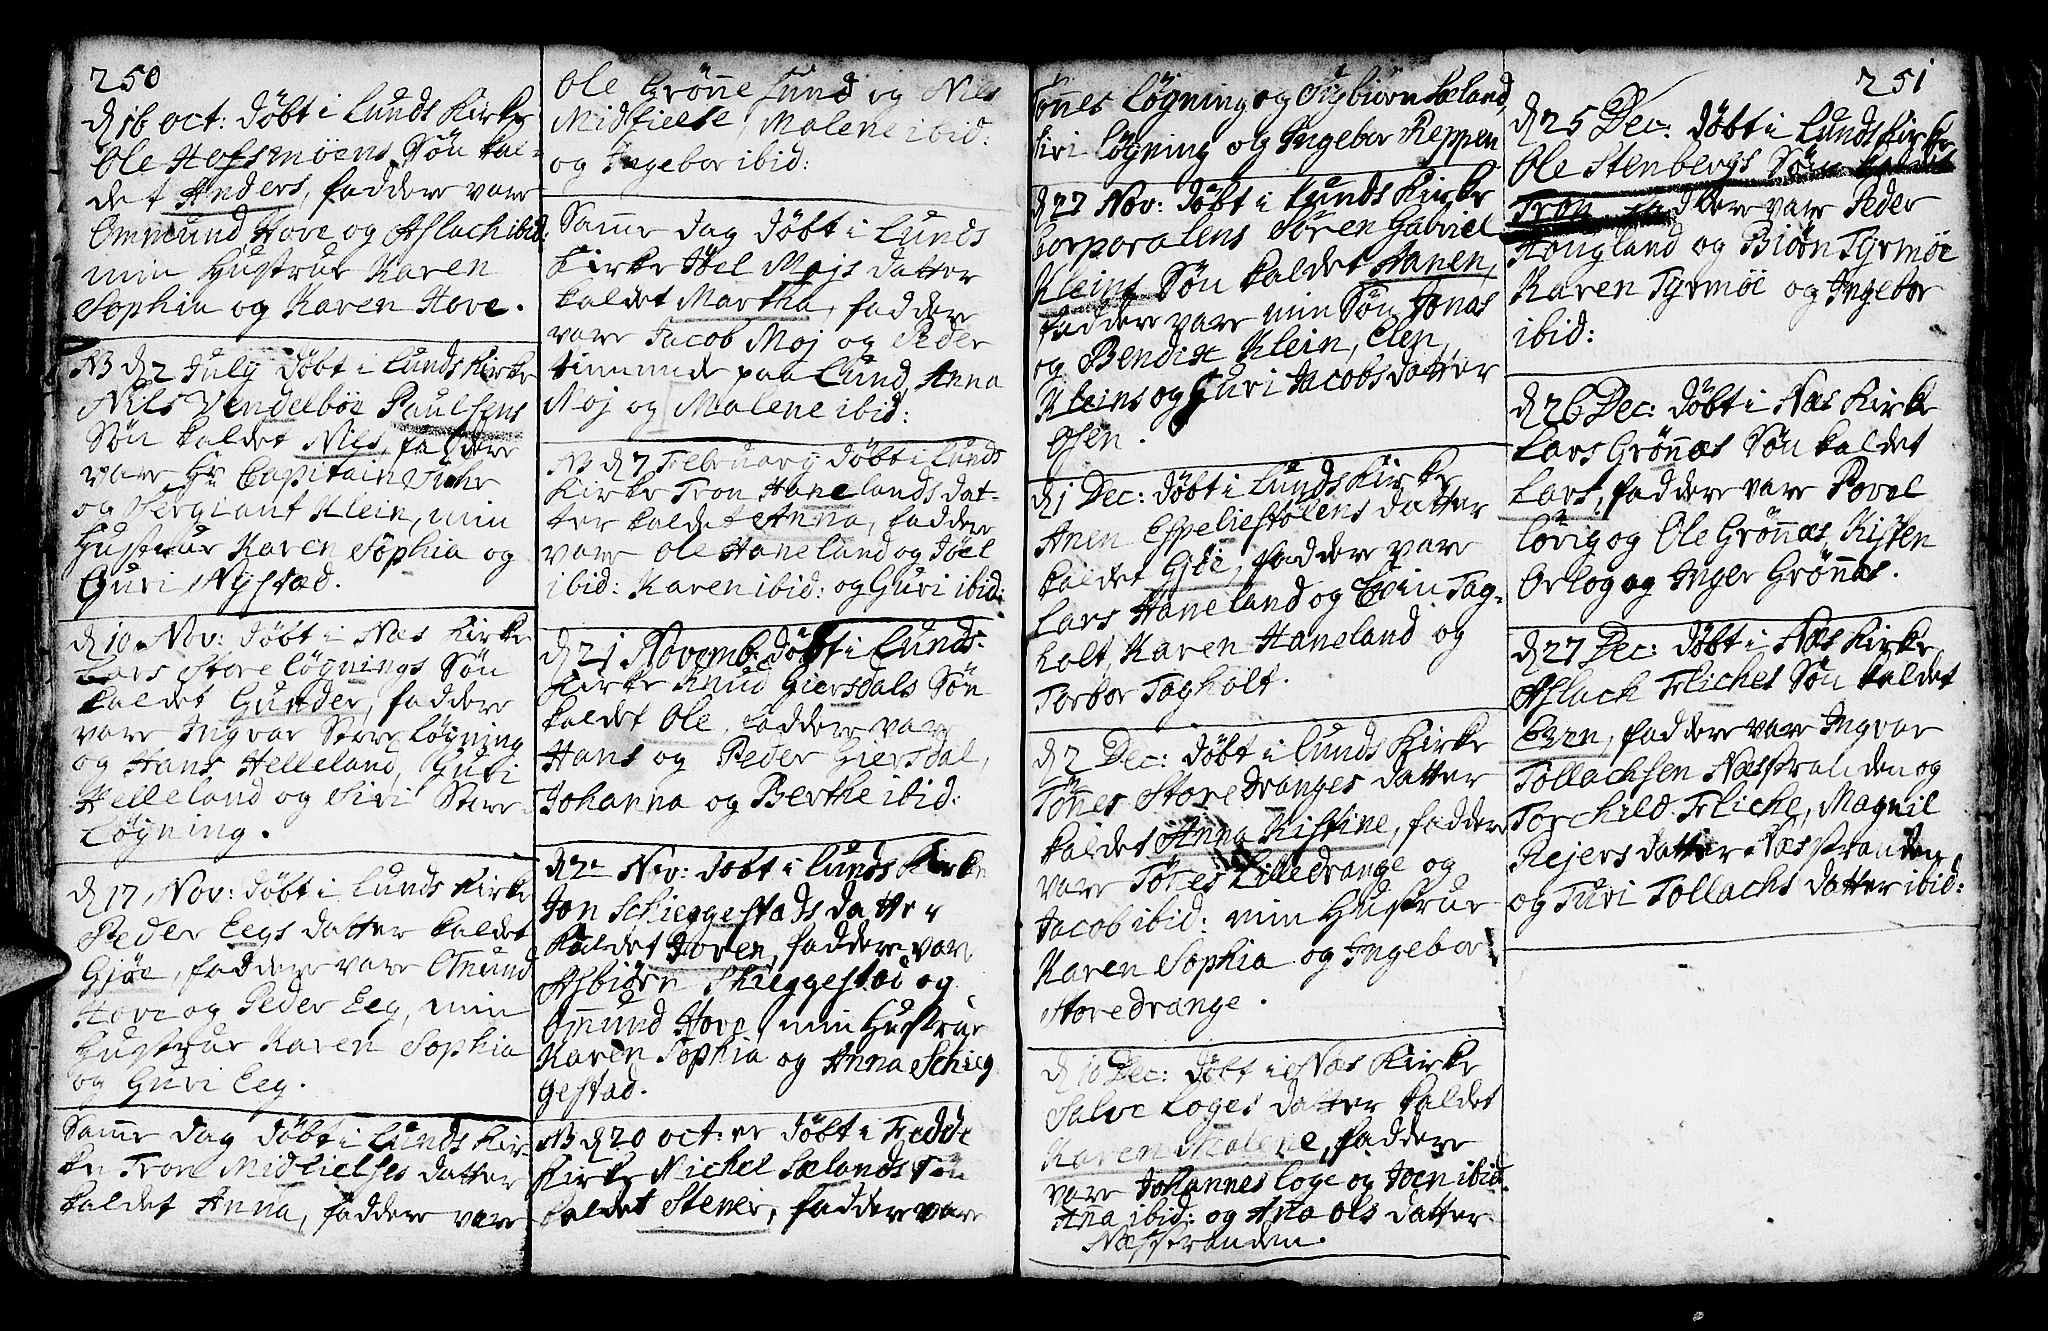 250
d 16 oct: døbt i Lunds Kirke
Ole Hofsmøens Søn kal-
det Anders, faddere vare
Ommund Hove og Aslach ibid:
min Hustrue Karen
Sophia og Karen Hove.
NB d 2 July døbt i Lunds Kirke
Nils Vendelbøe Paulsens
Søn kaldet Nils, faddere
vare Hr Capitain
og Sergiant Klein, min
Hustrue Karen Sophia og
Guri Nystad.
d 10 Nov: døbt i Næs Kirke
Lars Store Løgnings Søn
kaldet Gunder, faddere
vare Ingvar Store Løgning
og Hans Helleland, Guri
Helleland og Siri Store
Løgning.
d 17 Nov: døbt i Lunds Kirke
Peder Eegs datter kaldet
Gjøe, faddere vare Omund
Hove og Peder Eeg, min
Hustrue Karen Sophia
og Guri Eeg.
Samme dag døbt i Lunds Kir-
ke Tron Midbielses datter
kaldet Anna, faddere vare
Ole Grønne Lund og Nils
Midbielse, Malene ibid:
og Ingebor ibid:
Samme dag døbt i Lunds
Kirke Joel Mojs datter
kaldet Martha, faddere
vare Jacob Moj og Peder
tienende paa Lund, Anna
Moj og Malene ibid:
NB d 7 February døbt i Lunds
Kirke Tron Hanelands dat-
ter kaldet Anna, faddere
vare Ole Haneland og Joel
ibid: Karen ibid: og Guri ibid:
d 21 Novemb: døbt i Lunds
Kirke Knud Giersdals Søn
kaldet Ole, faddere vare
Hans og Peder Giersdal,
Johanna og Berthe ibid:
d 22 Nov: døbt i Lunds Kirke
Jon Schieggestads datter
kaldet Joren, faddere vare
Asbiørn Skieggestad og
Omund Hove, min Hustrue
Karen Sophia og Anna Schieg
gestad.
NB d 20 oct: er døbt i Fedde
Kirke Michel Sælands Søn
kaldet Stener, faddere vare
251
Tønnes Løgning og Sigbiørn Sæland,
Siri Løgning og Ingebor Reppen
d 27 Nov: døbt i Lunds Kirke
Corporalens Søren Gabriel
Kleins Søn kaldet Hanen,
faddere vare min Søn Jonas
og Bendix Klein, Elen
Kleins og Guri Jacobsdatter
Osen.
d 1 Dec: døbt i Lunds Kirke
Anen Espeliestølens datter
kaldet Gjøe, faddere vare
Lars Haneland og Evin Tag-
holt, Karen Haneland og
Torbor Tagholt.
d 2 Dec: døbt i Lunds Kirke
Tønnes Store Dranges datter
kaldet Anna Kistine, faddere
vare Tønnes Lilledrange og
Jacob ibid: min Hustrue
Karen Sophia og Ingebor
Storedrange.
d 10 Dec: døbt i Næs Kirke
Salve Loges datter kaldet
Karen Malene, faddere
vare Johannes Loge og Joen ibid:
Anna ibid: og Ana Ols datter
Næsstranden.
d 25 Dec: døbt i Lunds Kirke
Ole Stenbergs Søn kaldet
Tron faddere vare Peder
Hougland og Biørn Tyrmøe
Karen Tyrmøe og Ingebor
ibid:
d 26 Dec: døbt i Næs Kirke
Lars Grønnæs Søn kaldet
Lars, faddere vare Povel
Løvig og Ole Grønnæs, Kisten
Orlog og Inger Grønnæs.
d 27 Dec: døbt i Næs Kirke
Aslach Fliches Søn kaldet
Even, faddere vare Ingvar
Tollachsen Næsstranden og
Torchild Fliche, Magnil
Rejers datter Næsstranden
og Turi Tollachs datter ibid: